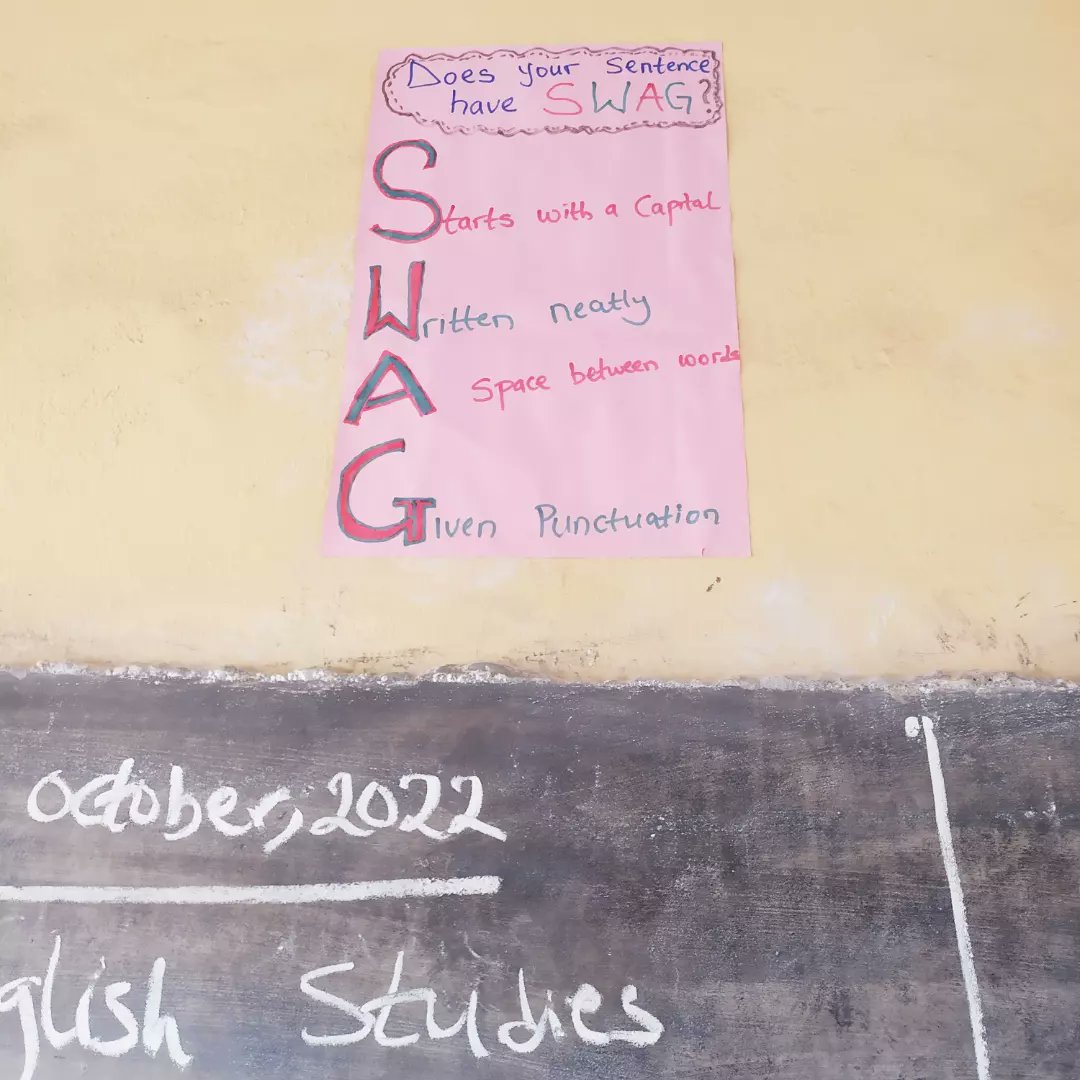 Does your Sentence
have SWAG?
Starts with a Capital
Written neatly
A Space between words
Given Punctuation
october, 2022
glish Studies